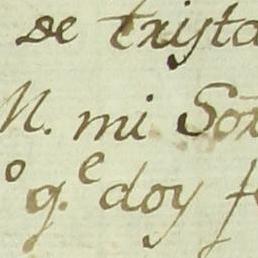 de Trista
N. mi Sor
o g.e doy fe